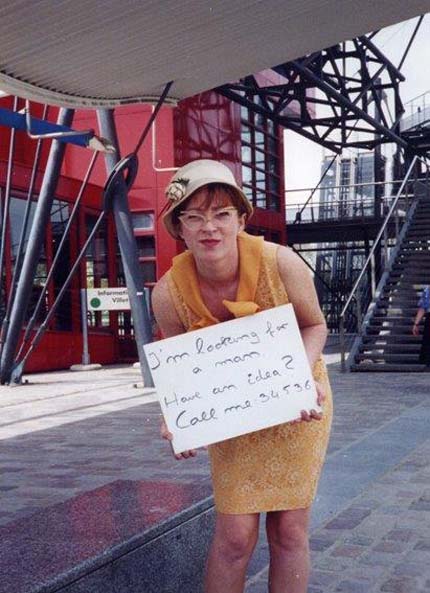 Informati
Villet
I'm looking for
a man.
Have an idea?
Call me: 34536